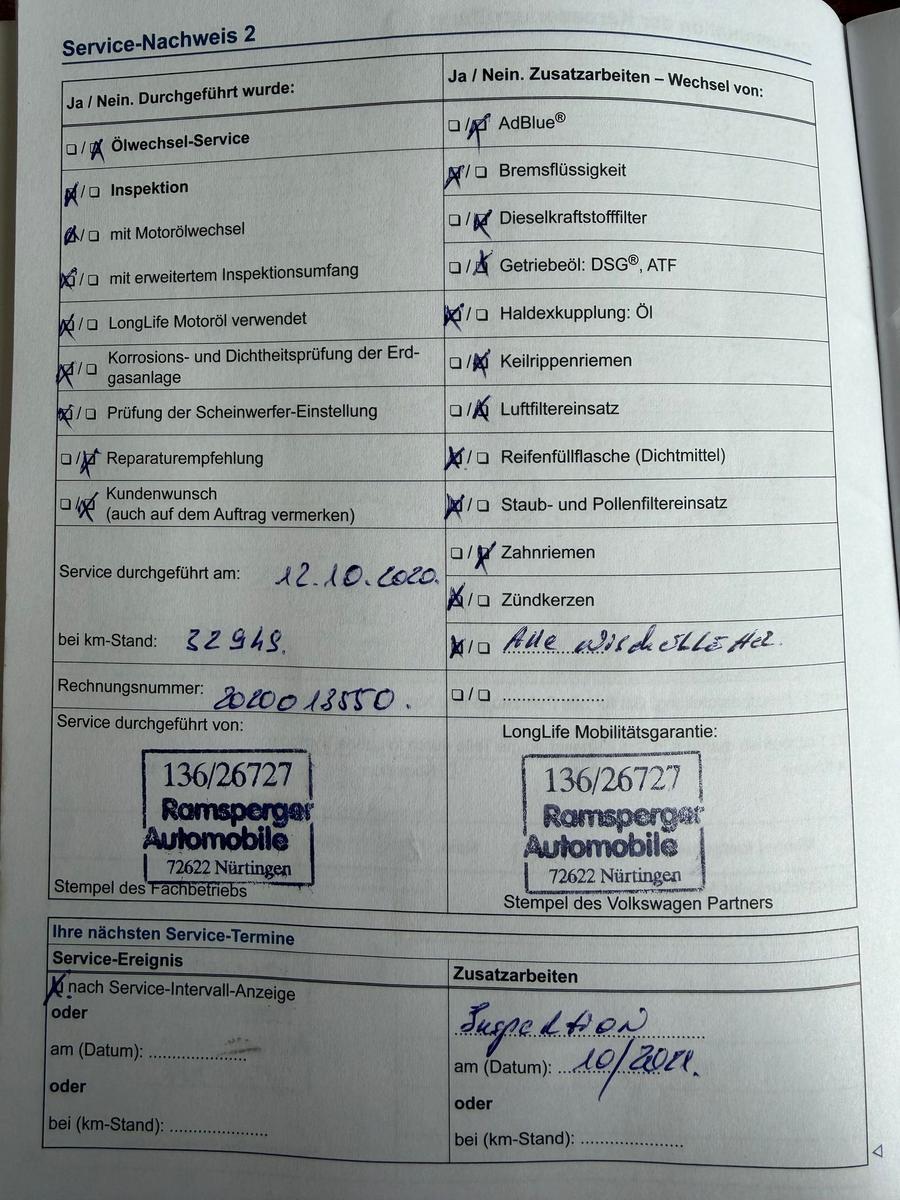 Service-Nachweis 2
Ja / Nein. Durchgeführt wurde:
☐/☒ Ölwechsel-Service
☒/☐ Inspektion
☒/☐ mit Motorölwechsel
☒/☐ mit erweitertem Inspektionsumfang
☒/☐ LongLife Motoröl verwendet
☒/☐ Korrosions- und Dichtheitsprüfung der Erd-
gasanlage
☒/☐ Prüfung der Scheinwerfer-Einstellung
☐/☒ Reparaturempfehlung
☐/☒ Kundenwunsch
(auch auf dem Auftrag vermerken)
Service durchgeführt am: 12.10.2020.
bei km-Stand: 32949.
Rechnungsnummer: 2020013550.
Service durchgeführt von:
136/26727
Ramsperger
Automobile
72622 Nürtingen
Stempel des Fachbetriebs
Ja / Nein. Zusatzarbeiten – Wechsel von:
☐/☒ AdBlue®
☒/☐ Bremsflüssigkeit
☐/☒ Dieselkraftstofffilter
☐/☒ Getriebeöl: DSG®, ATF
☒/☐ Haldexkupplung: Öl
☐/☒ Keilrippenriemen
☐/☒ Luftfiltereinsatz
☒/☐ Reifenfüllflasche (Dichtmittel)
☒/☐ Staub- und Pollenfiltereinsatz
☐/☒ Zahnriemen
☒/☐ Zündkerzen
☒/☐ Alle Wischblätter.
☐/☐ ....................
LongLife Mobilitätsgarantie:
136/26727
Ramsperger
Automobile
72622 Nürtingen
Stempel des Volkswagen Partners
Ihre nächsten Service-Termine
Service-Ereignis
☒ nach Service-Intervall-Anzeige
oder
am (Datum): ....................
oder
bei (km-Stand): ....................
Zusatzarbeiten
Inspektion
am (Datum): 10/2021.
oder
bei (km-Stand): ....................